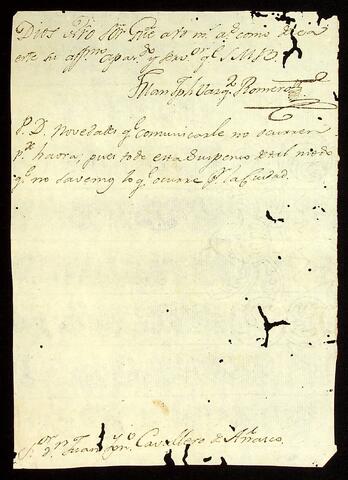 Dios nro Sor Gue a vd ms as como desea
este su affmo apasdo y servor q S M B
Juan Jph Vasqz Romero
P. D. Novedades qe comunicarle no ocurren
pr haora, pues todo esta suspenso de tal modo
qe no savemos lo qe ocurre pr la Ciudad.
Sor Dn Juan Cavallero de Añasco.